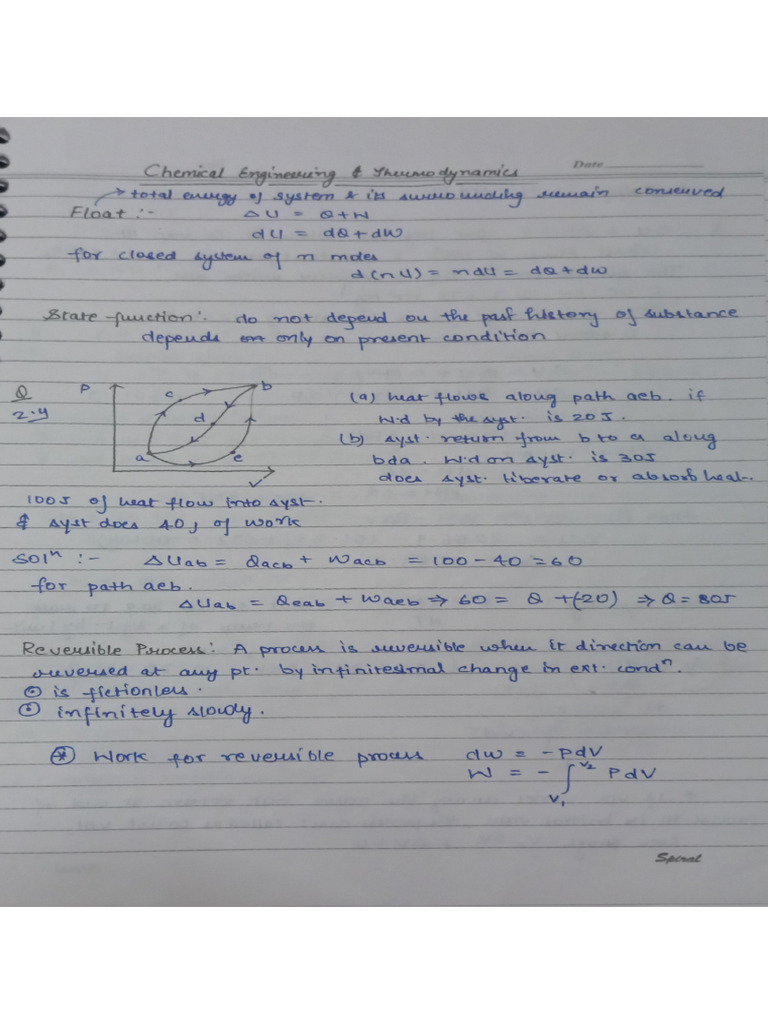 Date
Chemical Engineering & Thermodynamics
→ total energy of system & its surrounding remain conserved
Float :- ΔU = Q+W
dU = dQ + dW
for closed system of n moles
d(nU) = ndU = dQ + dw
State function: do not depend on the past history of substance
depends only on present condition
Q 2.4
P
c
b
d
a
e
V
(a) heat flows along path aeb. if
W.d by the syst. is 20J.
(b) syst. return from b to a along
bda. W.d on syst. is 30J
does syst. liberate or absorb heat.
100J of heat flow into syst.
& syst does 40J of work
Solⁿ :- ΔUab = Qacb + Wacb = 100 - 40 = 60
for path aeb.
ΔUab = Qeab + Waeb ⇒ 60 = Q + (-20) ⇒ Q = 80J
Reversible Process: A process is reversible when it direction can be
reversed at any pt. by infinitesimal change in ext. condⁿ.
⊙ is fictionless.
⊙ infinitely slowly.
⊛ Work for reversible process dw = -PdV
W = -∫_{V₁}^{V₂} PdV
Spiral